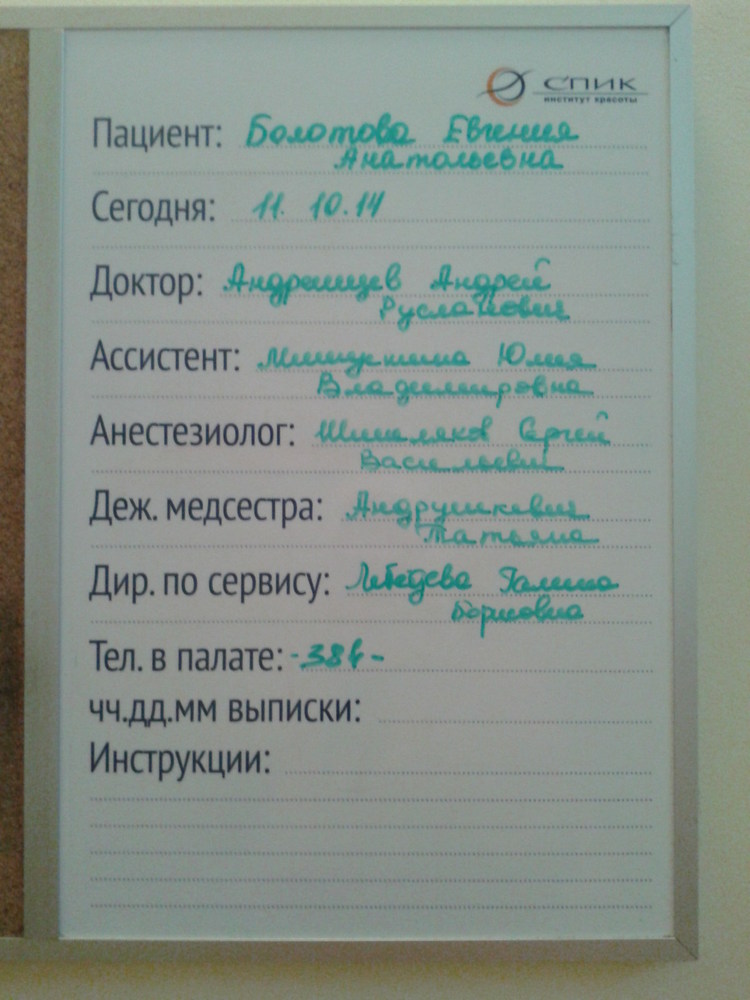 СПИК
институт красоты
Пациент: Болотова Евгения
Анатольевна
Сегодня: 11. 10.14
Доктор: Андрей
Русланович
Ассистент: Юлия
Владимировна
Анестезиолог: Сергей
Васильевич
Деж. медсестра: Андрушкевич
Татьяна
Дир. по сервису: Лебедева Галина
Борисовна
Тел. в палате:
чч.дд.мм выписки:
Инструкции: